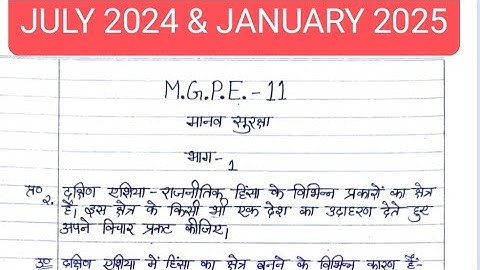 JULY 2024 & JANUARY 2025
M.G.P.E.-11
मानव सुरक्षा
भाग-1
प्र० २. दक्षिण एशिया - राजनीतिक हिंसा के विभिन्न प्रकारों का क्षेत्र
है। इस क्षेत्र के किसी भी एक देश का उदाहरण देते हुए
अपने विचार प्रकट कीजिए।
उ० दक्षिण एशिया में हिंसा का क्षेत्र बनने के विभिन्न कारण हैं-